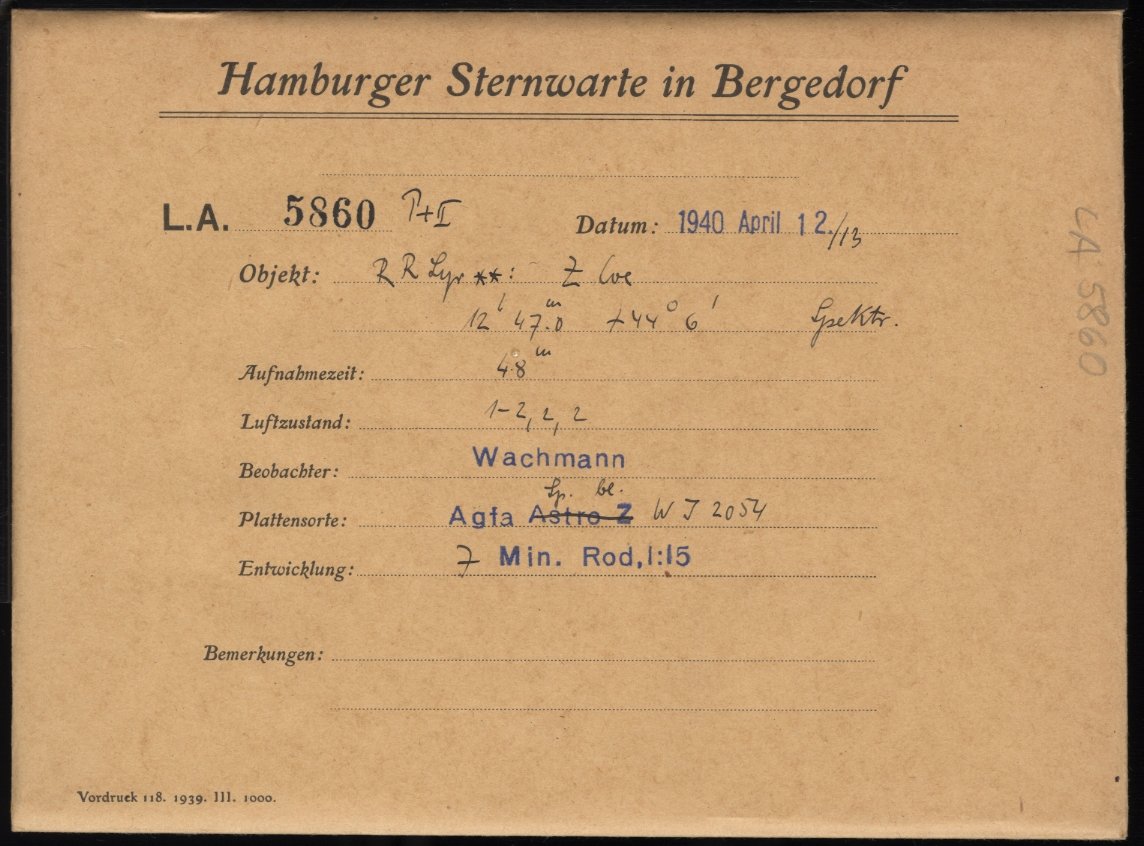 Hamburger Sternwarte in Bergedorf
L.A. 5860 I+II
Datum: 1940 April 12./13
Objekt: RR Lyr **: Z Cve
12ʰ 47ᵐ.0 +44° 6' Spektr.
Aufnahmezeit: 48ᵐ
Luftzustand: 1-2, 2, 2
Beobachter: Wachmann
Sp. bl.
Plattensorte: Agfa Astro Z W J 2054
Entwicklung: 7 Min. Rod, 1:15
Bemerkungen:
Vordruck 118. 1939. III. 1000.
LA 5860